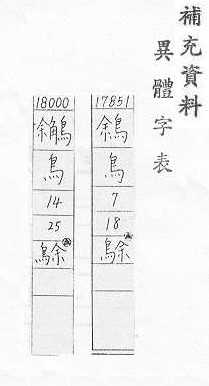 補充資料
異體字表
17851
鵌
鳥
7
18
18000
鳥
14
25